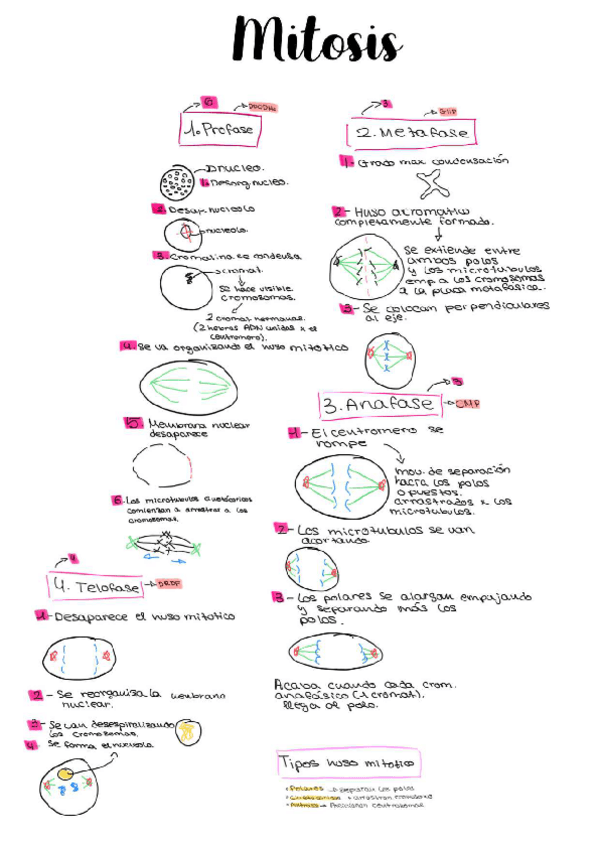 Mitosis
6
1. Profase
núcleo.
1. Desorg núcleo.
2. Desap. nucleolo
nucleolo.
3. Cromatina se condensa
cromat.
Se hace visible
cromosomas.
2 cromat hermanas.
(2 hebras ADN unidas x el
centrómero).
4. Se va organizando el huso mitótico
5. Membrana nuclear
desaparece
6. Los microtúbulos
comienzan a arrastrar a los
cromosomas.
3
2. Metafase
1- Grado max condensación
2- Huso acromático
completamente formado.
Se extiende entre
ambos polos
y los microtubulos
emp a los cromosomas
a la placa metafásica.
3- Se colocan perpendiculares
al eje.
3
3. Anafase
CMP
1- El centrómero se
rompe
mov. de separación
hacia los polos
opuestos.
arrastrados x los
microtubulos.
2- Los microtubulos se van
acortando
3- Los polares se alargan empujando
y separando más los
polos.
Acaba cuando cada crom.
anafásico (1 cromat).
llega al polo.
4
4. Telofase
DRDF
1- Desaparece el huso mitotico
2- Se reorganiza la membrana
nuclear.
3- Se van desespiralizando
los cromosomas.
4. Se forma el nucleolo.
Tipos huso mitotico
Polares → Separan los polos
arrastran cromosoma
centrosomas